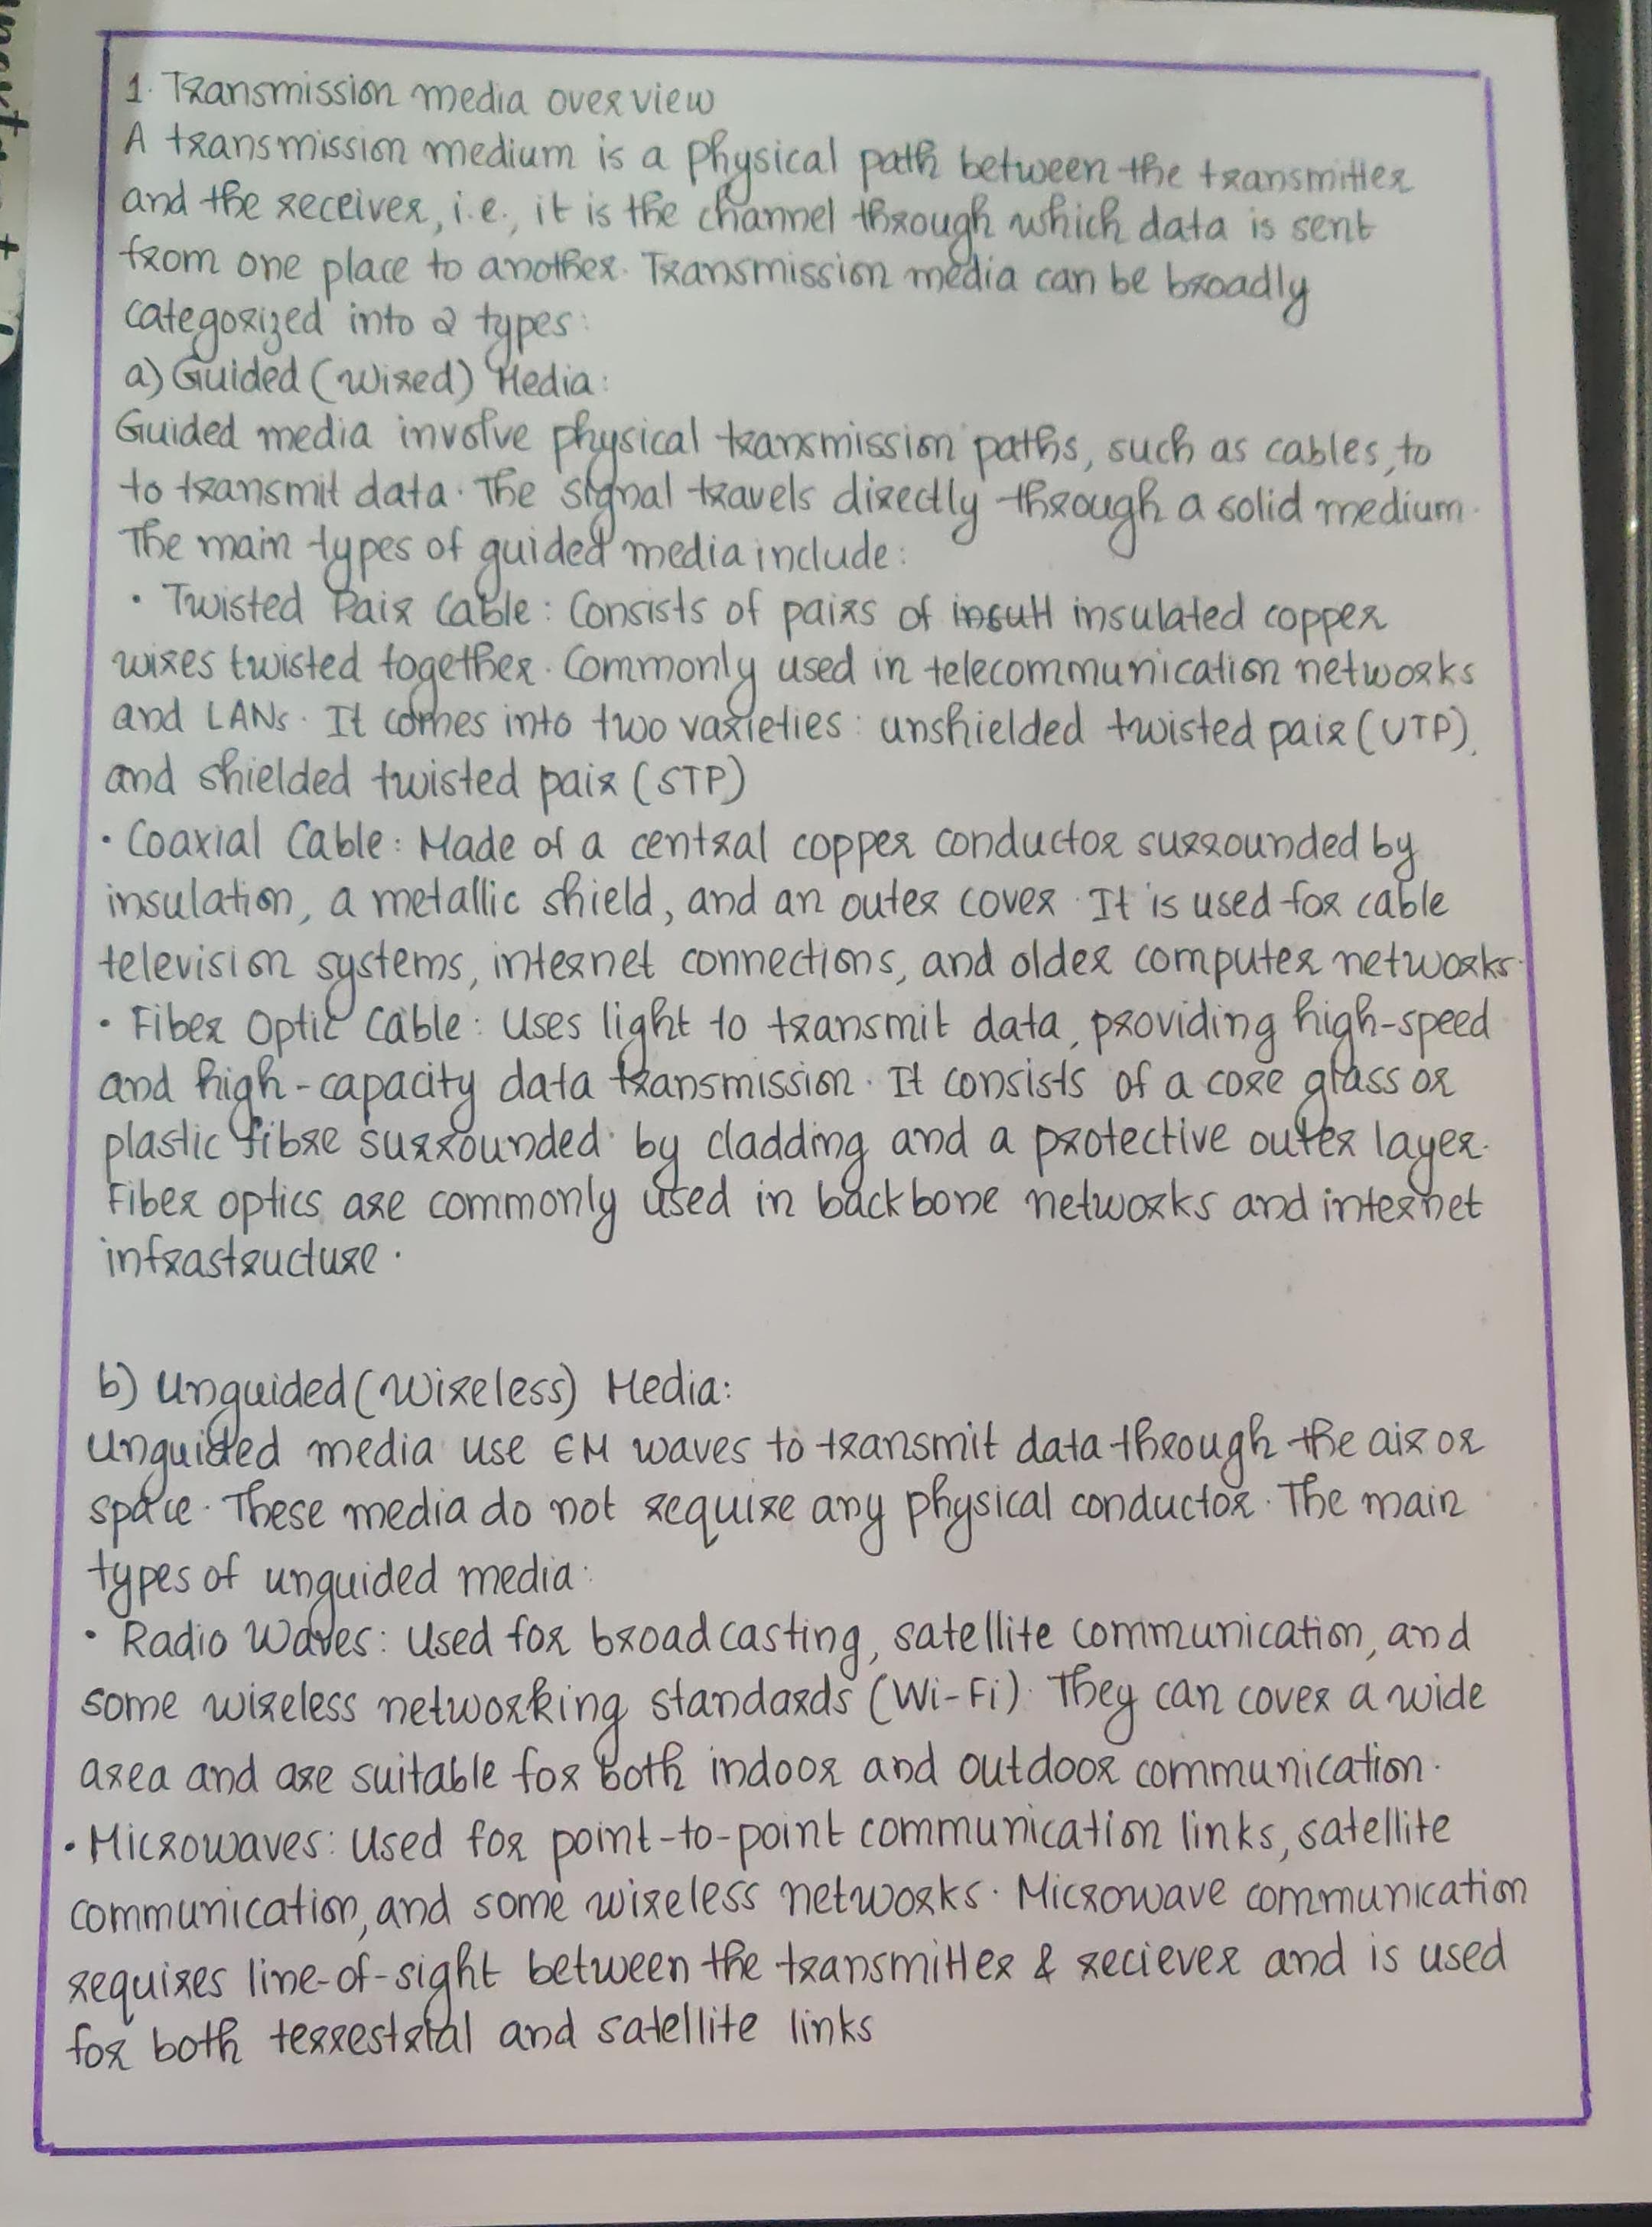 1. Transmission media overview
A transmission medium is a physical path between the transmitter
and the receiver, i.e., it is the channel through which data is sent
from one place to another. Transmission media can be broadly
categorized into 2 types:
a) Guided (Wired) Media:
Guided media involve physical transmission paths, such as cables, to
to transmit data. The signal travels directly through a solid medium.
The main types of guided media include:
• Twisted Pair Cable: Consists of pairs of insulated copper
wires twisted together. Commonly used in telecommunication networks
and LANs. It comes into two varieties: unshielded twisted pair (UTP),
and shielded twisted pair (STP)
• Coaxial Cable: Made of a central copper conductor surrounded by
insulation, a metallic shield, and an outer cover. It is used for cable
television systems, internet connections, and older computer networks.
• Fiber Optic Cable: Uses light to transmit data, providing high-speed
and high-capacity data transmission. It consists of a core glass or
plastic fibre surrounded by cladding and a protective outer layer.
Fiber optics are commonly used in backbone networks and internet
infrastructure.
b) Unguided (Wireless) Media:
Unguided media use EM waves to transmit data through the air or
space. These media do not require any physical conductor. The main
types of unguided media:
• Radio Waves: Used for broadcasting, satellite communication, and
some wireless networking standards (Wi-Fi). They can cover a wide
area and are suitable for both indoor and outdoor communication.
• Microwaves: Used for point-to-point communication links, satellite
communication, and some wireless networks. Microwave communication
requires line-of-sight between the transmitter & reciever and is used
for both terrestrial and satellite links